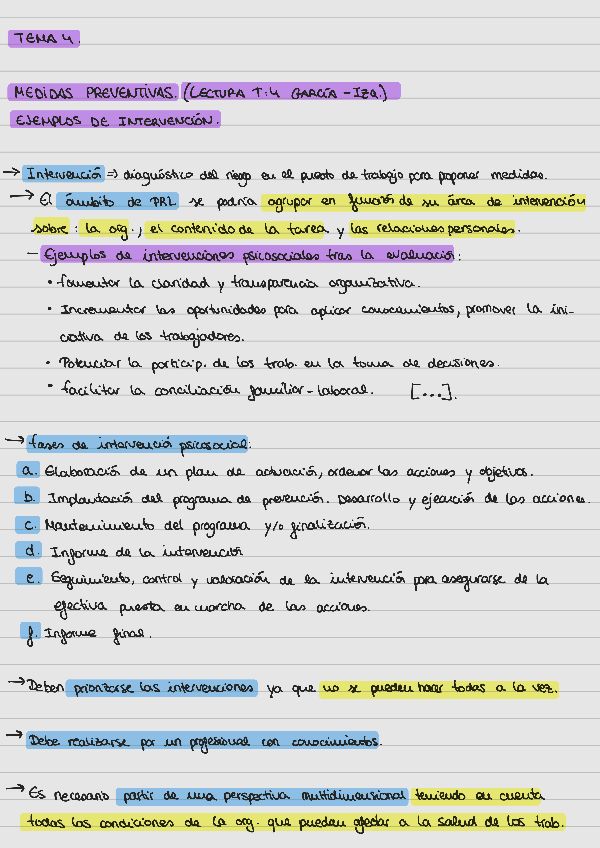 TEMA 4.
MEDIDAS PREVENTIVAS. (LECTURA T:4 GARCÍA-IZQ.)
EJEMPLOS DE INTERVENCIÓN.
→ Intervención ⇒ diagnóstico del riesgo en el puesto de trabajo para proponer medidas.
→ El ámbito de PRL se podría agrupar en función de su área de intervención
sobre: la org., el contenido de la tarea y las relaciones personales.
- Ejemplos de intervenciones psicosociales tras la evaluació:
• fomentar la claridad y transparencia organizativa.
• Incrementar las oportunidades para aplicar conocimientos, promover la ini-
ciativa de los trabajadores.
• Potenciar la particip. de los trab. en la toma de decisiones.
• facilitar la conciliación familiar-laboral. [...].
→ fases de intervenció psicosocial:
a. Elaboración de un plan de actuación, ordenar las acciones y objetivos.
b. Implantación del programa de prevención. Desarrollo y ejecución de las acciones.
c. Mantenimiento del programa y/o finalización.
d. Informe de la intervención
e. Seguimiento, control y valoración de la intervención para asegurarse de la
efectiva puesta en marcha de las acciones.
f. Informe final.
→ Deben priorizarse las intervenciones ya que no se pueden hacer todas a la vez.
→ Debe realizarse por un profesional con conocimientos.
→ Es necesario partir de una perspectiva multidimensional teniendo en cuenta
todas las condiciones de la org. que puedan afectar a la salud de los trab.